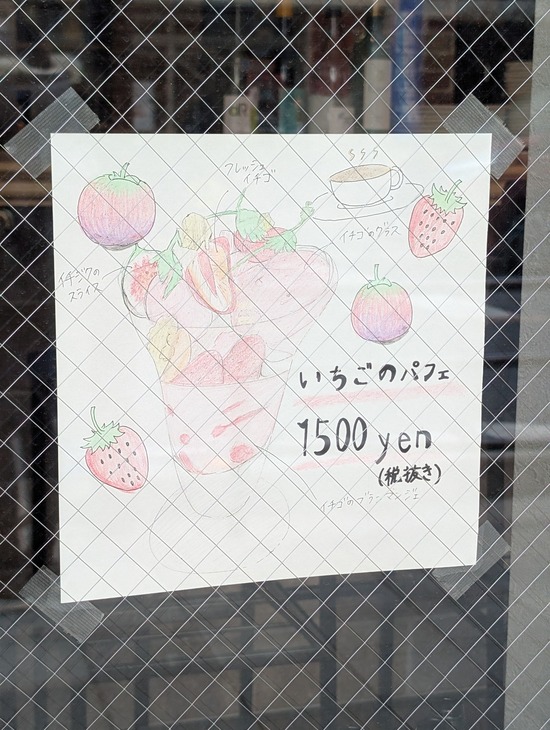 フレッシュ
イチゴ
イチゴのグラス
イチジクの
スライス
いちごのパフェ
1500 yen
(税抜き)
イチゴのブランマンジェ